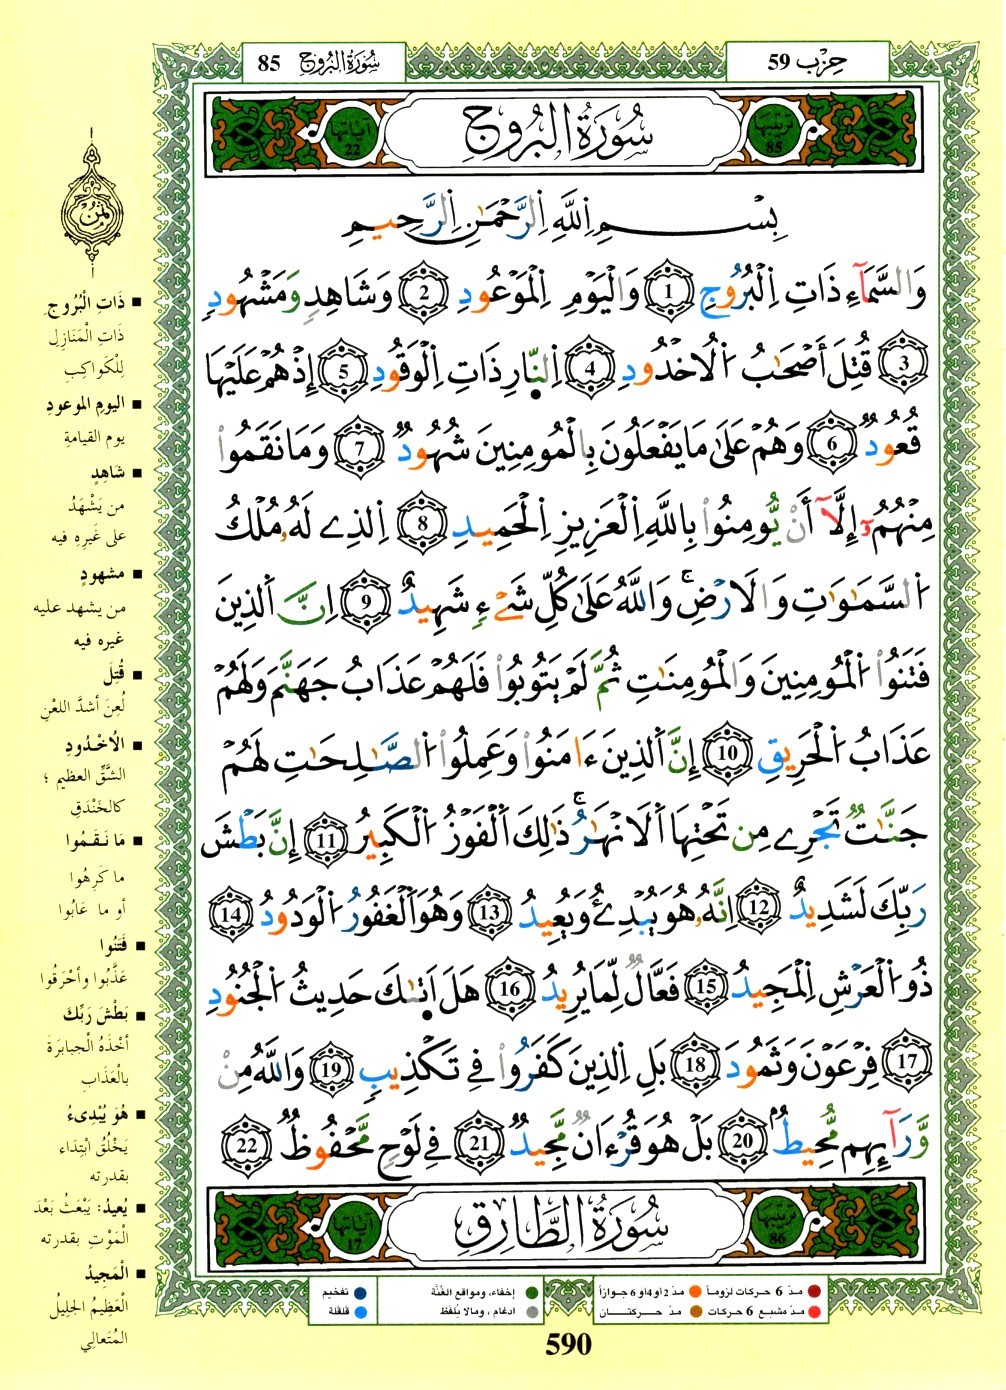 حِزْب 59
سُورَةُ البُرُوجِ 85
تَرْتِيبُهَا 85
سُورَةُ البُرُوجِ
آيَاتُهَا 22
بِسْمِ اِللَّهِ اِلرَّحْمَٰنِ اِلرَّحِيمِ
وَالسَّمَآءِ ذَاتِ اِلْبُرُوجِ 1 وَالْيَوْمِ اِلْمَوْعُودِ 2 وَشَاهِدٖ وَمَشْهُودٖ
3 قُتِلَ أَصْحَٰبُ اُلُاخْدُودِ 4 اِلنّ۪ارِ ذَاتِ اِلْوَقُودِ 5 إِذْ هُمْ عَلَيْهَا
قُعُودٞ 6 وَهُمْ عَلَىٰ مَا يَفْعَلُونَ بِالْمُومِنِينَ شُهُودٞ 7 وَمَا نَقَمُوا
مِنْهُمُۥٓ إِلَّآ أَنْ يُّومِنُوا بِاللَّهِ اِلْعَزِيزِ اِلْحَمِيدِ 8 اِلذِے لَهُۥ مُلْكُ
اُلسَّمَٰوَٰتِ وَالَارْضِۖ وَاللَّهُ عَلَىٰ كُلِّ شَےْءٖ شَهِيدٌ 9 اِنَّ اَلذِينَ
فَتَنُوا اُلْمُومِنِينَ وَالْمُومِنَٰتِ ثُمَّ لَمْ يَتُوبُوا فَلَهُمْ عَذَابُ جَهَنَّمَ وَلَهُمْ
عَذَابُ اُلْحَرِيقِ 10 إِنَّ اَلذِينَ ءَامَنُوا وَعَمِلُوا اُلصَّٰلِحَٰتِ لَهُمْ
جَنَّٰتٞ تَجْرِے مِن تَحْتِهَا اَلَانْهَٰرُۖ ذَٰلِكَ اَلْفَوْزُ اُلْكَبِيرُ 11 إِنَّ بَطْشَ
رَبِّكَ لَشَدِيدٌ 12 اِنَّهُۥ هُوَ يُبْدِئُ وَيُعِيدُ 13 وَهُوَ اَلْغَفُورُ اُلْوَدُودُ 14
ذُو اُلْعَرْشِ اِلْمَجِيدُ 15 فَعَّالٞ لِّمَا يُرِيدُ 16 هَلَ اَت۪يٰكَ حَدِيثُ اُلْجُنُودِ
17 فِرْعَوْنَ وَثَمُودَ 18 بَلِ اِلذِينَ كَفَرُوا فِے تَكْذِيبٖ 19 وَاللَّهُ مِنْ
وَّرَآئِهِم مُّحِيطٞ 20 بَلْ هُوَ قُرْءَانٞ مَّجِيدٞ 21 فِے لَوْحٖ مَّحْفُوظٞ 22
تَرْتِيبُهَا 86
سُورَةُ الطَّارِقِ
آيَاتُهَا 17
ثُمُن
ذَاتِ الْبُرُوجِ
ذَاتِ الْمَنَازِلِ
لِلْكَوَاكِبِ
اليومِ الموعودِ
يوم القيامةِ
شاهِدٍ
من يَشْهَدُ
على غَيرِهِ فيه
مشهودٍ
من يشهد عليه
غيره فيه
قُتِلَ
لُعِنَ أشدَّ اللعْنِ
الُاخْدُودِ
الشَّقِّ العظيم ؛
كالخَنْدَقِ
مَا نَقَمُوا
ما كَرِهُوا
أو ما عَابُوا
فَتَنُوا
عَذَّبُوا وأحْرَقُوا
بَطْشَ رَبِّكَ
أخْذَهُ الْجبابرَةَ
بالْعَذَابِ
هُوَ يُبْدِىءُ
يَخْلُقُ ابْتِدَاء
بقدرته
يُعِيدُ: يَبْعَثُ بَعْدَ
الْمَوْتِ بقدرته
الْمَجِيدُ
الْعَظِيمُ الجليلُ
المُتَعالِي
مدّ 6 حركات لزوماً
مدّ 2 أو 4 أو 6 جوازاً
إخفاء، ومواقع الغُنَّة
تفخيم
مدّ مشبع 6 حركات
مدّ حـركتـــان
ادغام ، ومالا يُلفَظ
قلقلة
590